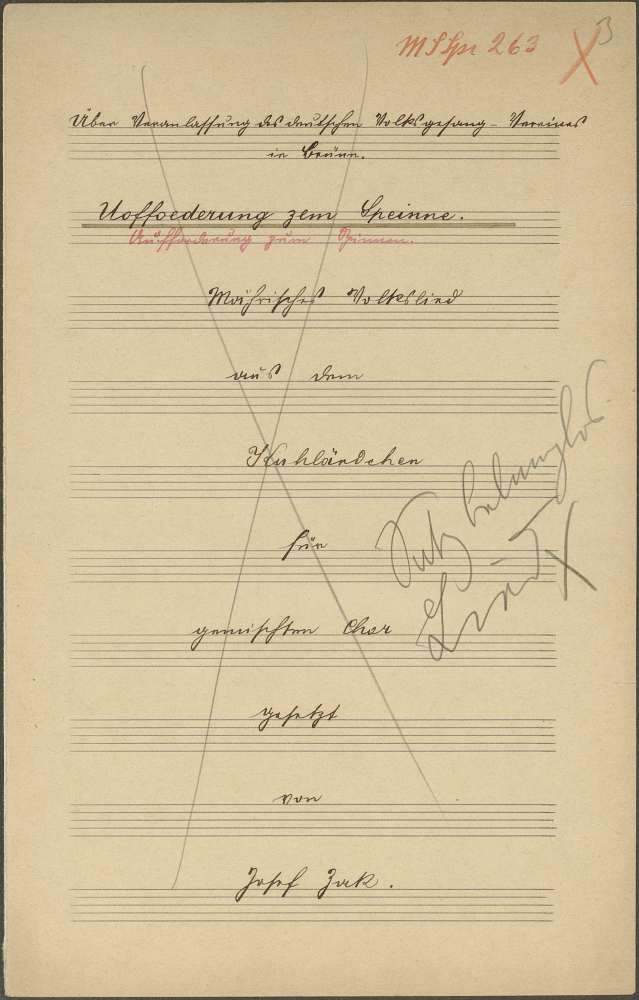 MS Spr 263
X 3
Über Veranlassung des deutschen Volksgesang-Vereines
in Brünn.
Uoffoederung zem Speinne.
Aufforderung zum Spinnen.
Mährisches Volkslied
aus dem
Kuhländchen
für
gemischten Chor
gesetzt
von
Josef Zak.
Satz belanglos